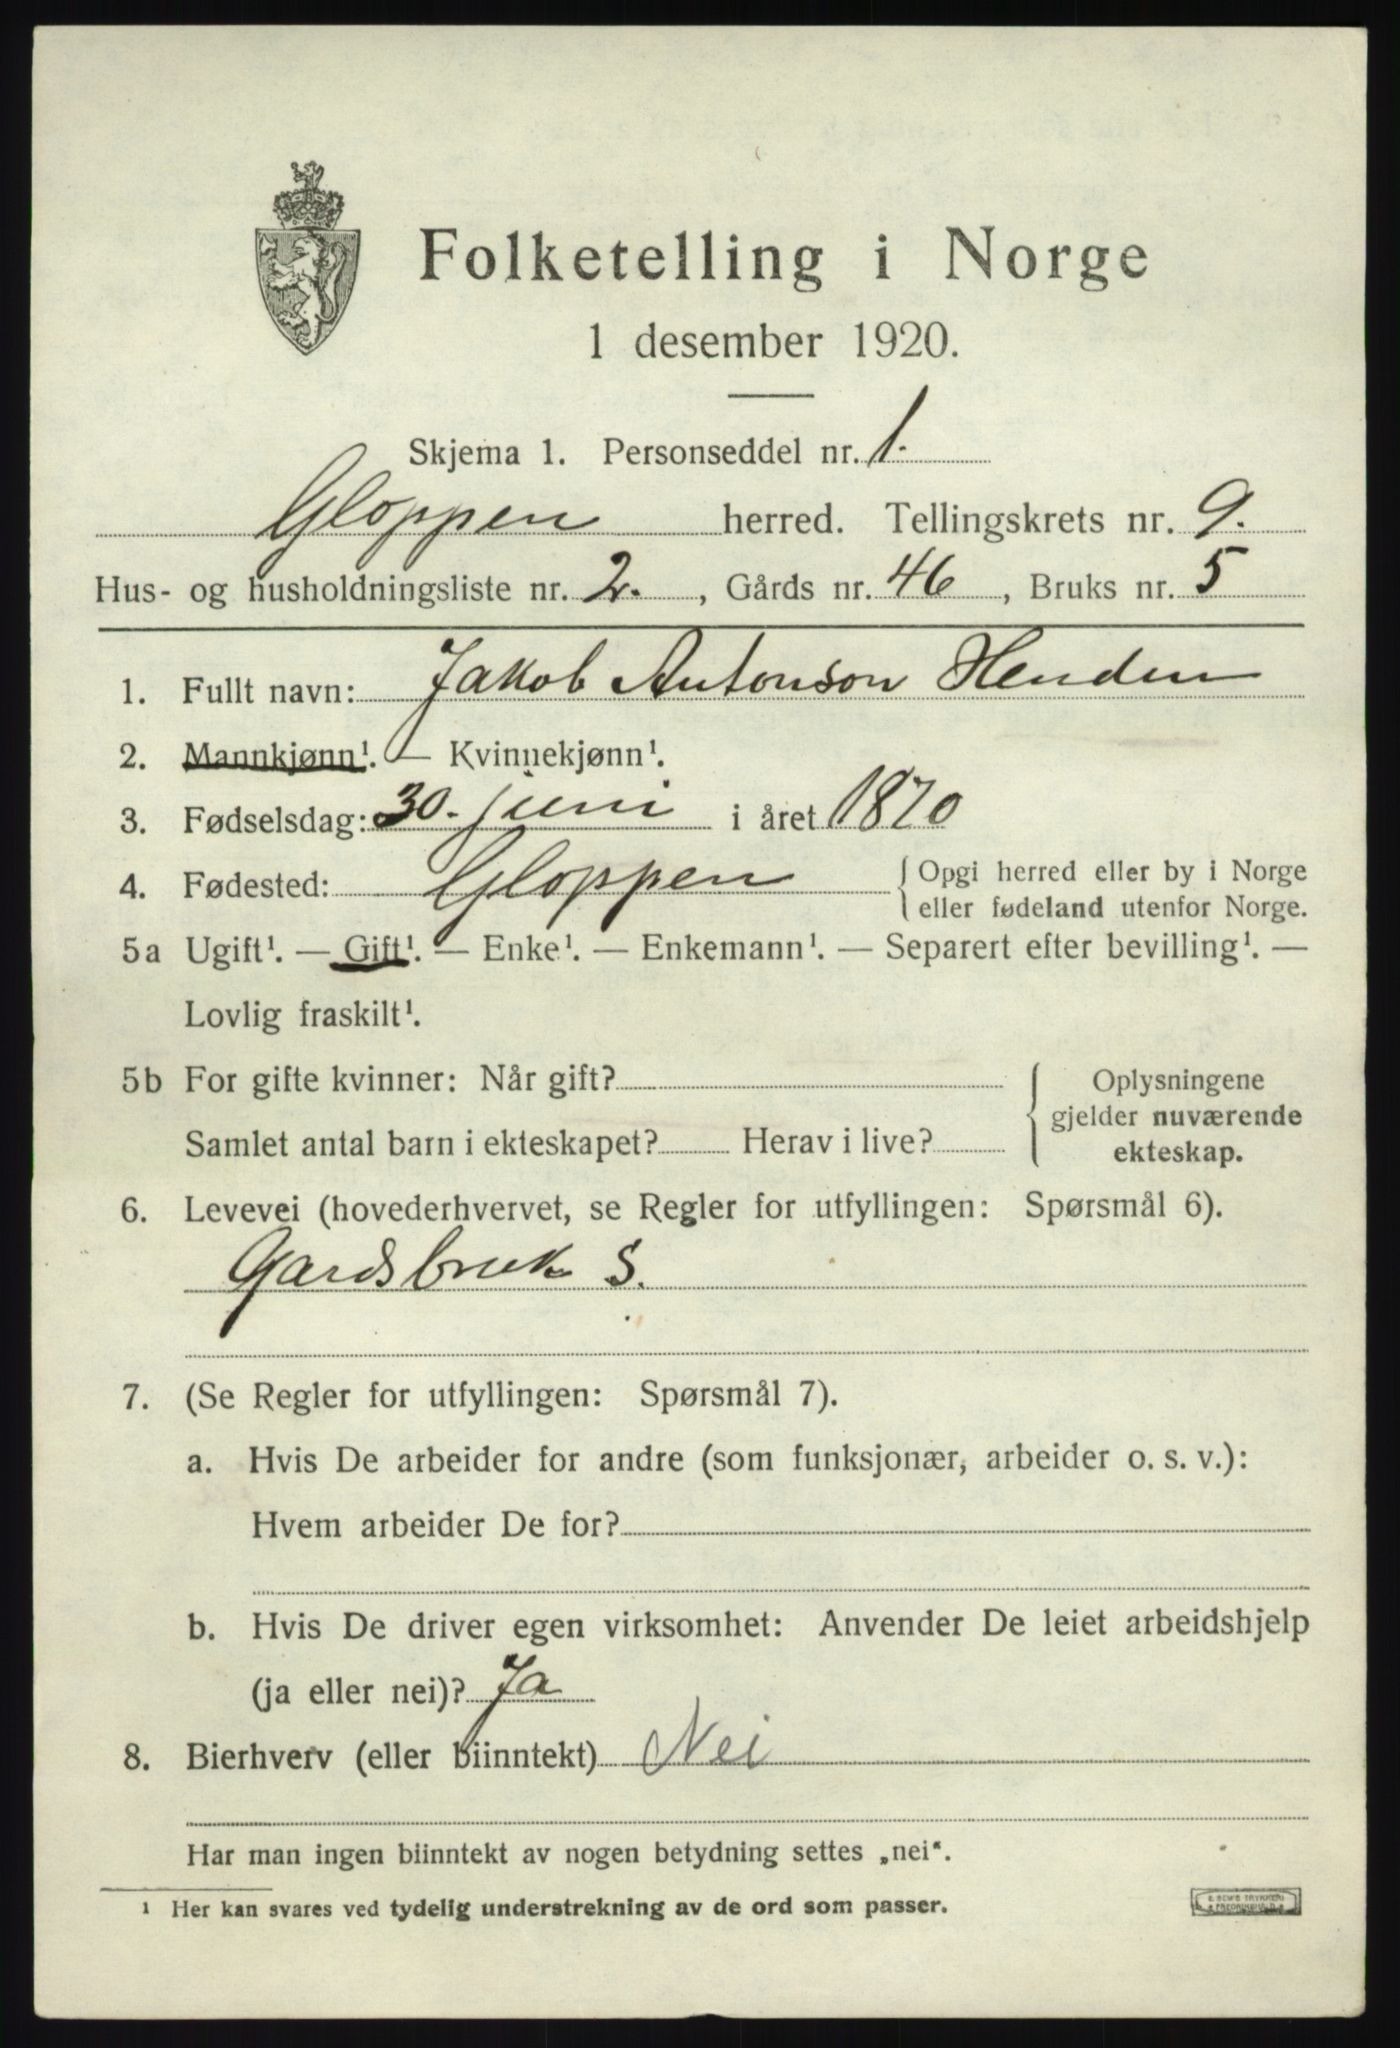 Folketelling i Norge
1 desember 1920.
Skjema 1. Personseddel nr. 1.
Gloppen herred. Tellingskrets nr. 9.
Hus- og husholdningsliste nr. 2., Gårds nr. 46, Bruks nr. 5
1. Fullt navn: Jakob Antonson Henden
2. Mannkjønn¹. — Kvinnekjønn¹.
3. Fødselsdag: 30. juni i året 1870
4. Fødested: Gloppen { Opgi herred eller by i Norge
eller fødeland utenfor Norge.
5a Ugift¹. — Gift¹. — Enke¹. — Enkemann¹. — Separert efter bevilling¹. —
Lovlig fraskilt¹.
5b For gifte kvinner: Når gift? { Oplysningene
gjelder nuværende
Samlet antal barn i ekteskapet? Herav i live?
ekteskap.
6. Levevei (hovederhvervet, se Regler for utfyllingen: Spørsmål 6).
Gardsbruk S.
7. (Se Regler for utfyllingen: Spørsmål 7).
a. Hvis De arbeider for andre (som funksjonær, arbeider o. s. v.):
Hvem arbeider De for?
b. Hvis De driver egen virksomhet: Anvender De leiet arbeidshjelp
(ja eller nei)? Ja
8. Bierhverv (eller biinntekt) Nei
Har man ingen biinntekt av nogen betydning settes „nei“.
¹ Her kan svares ved tydelig understrekning av de ord som passer.